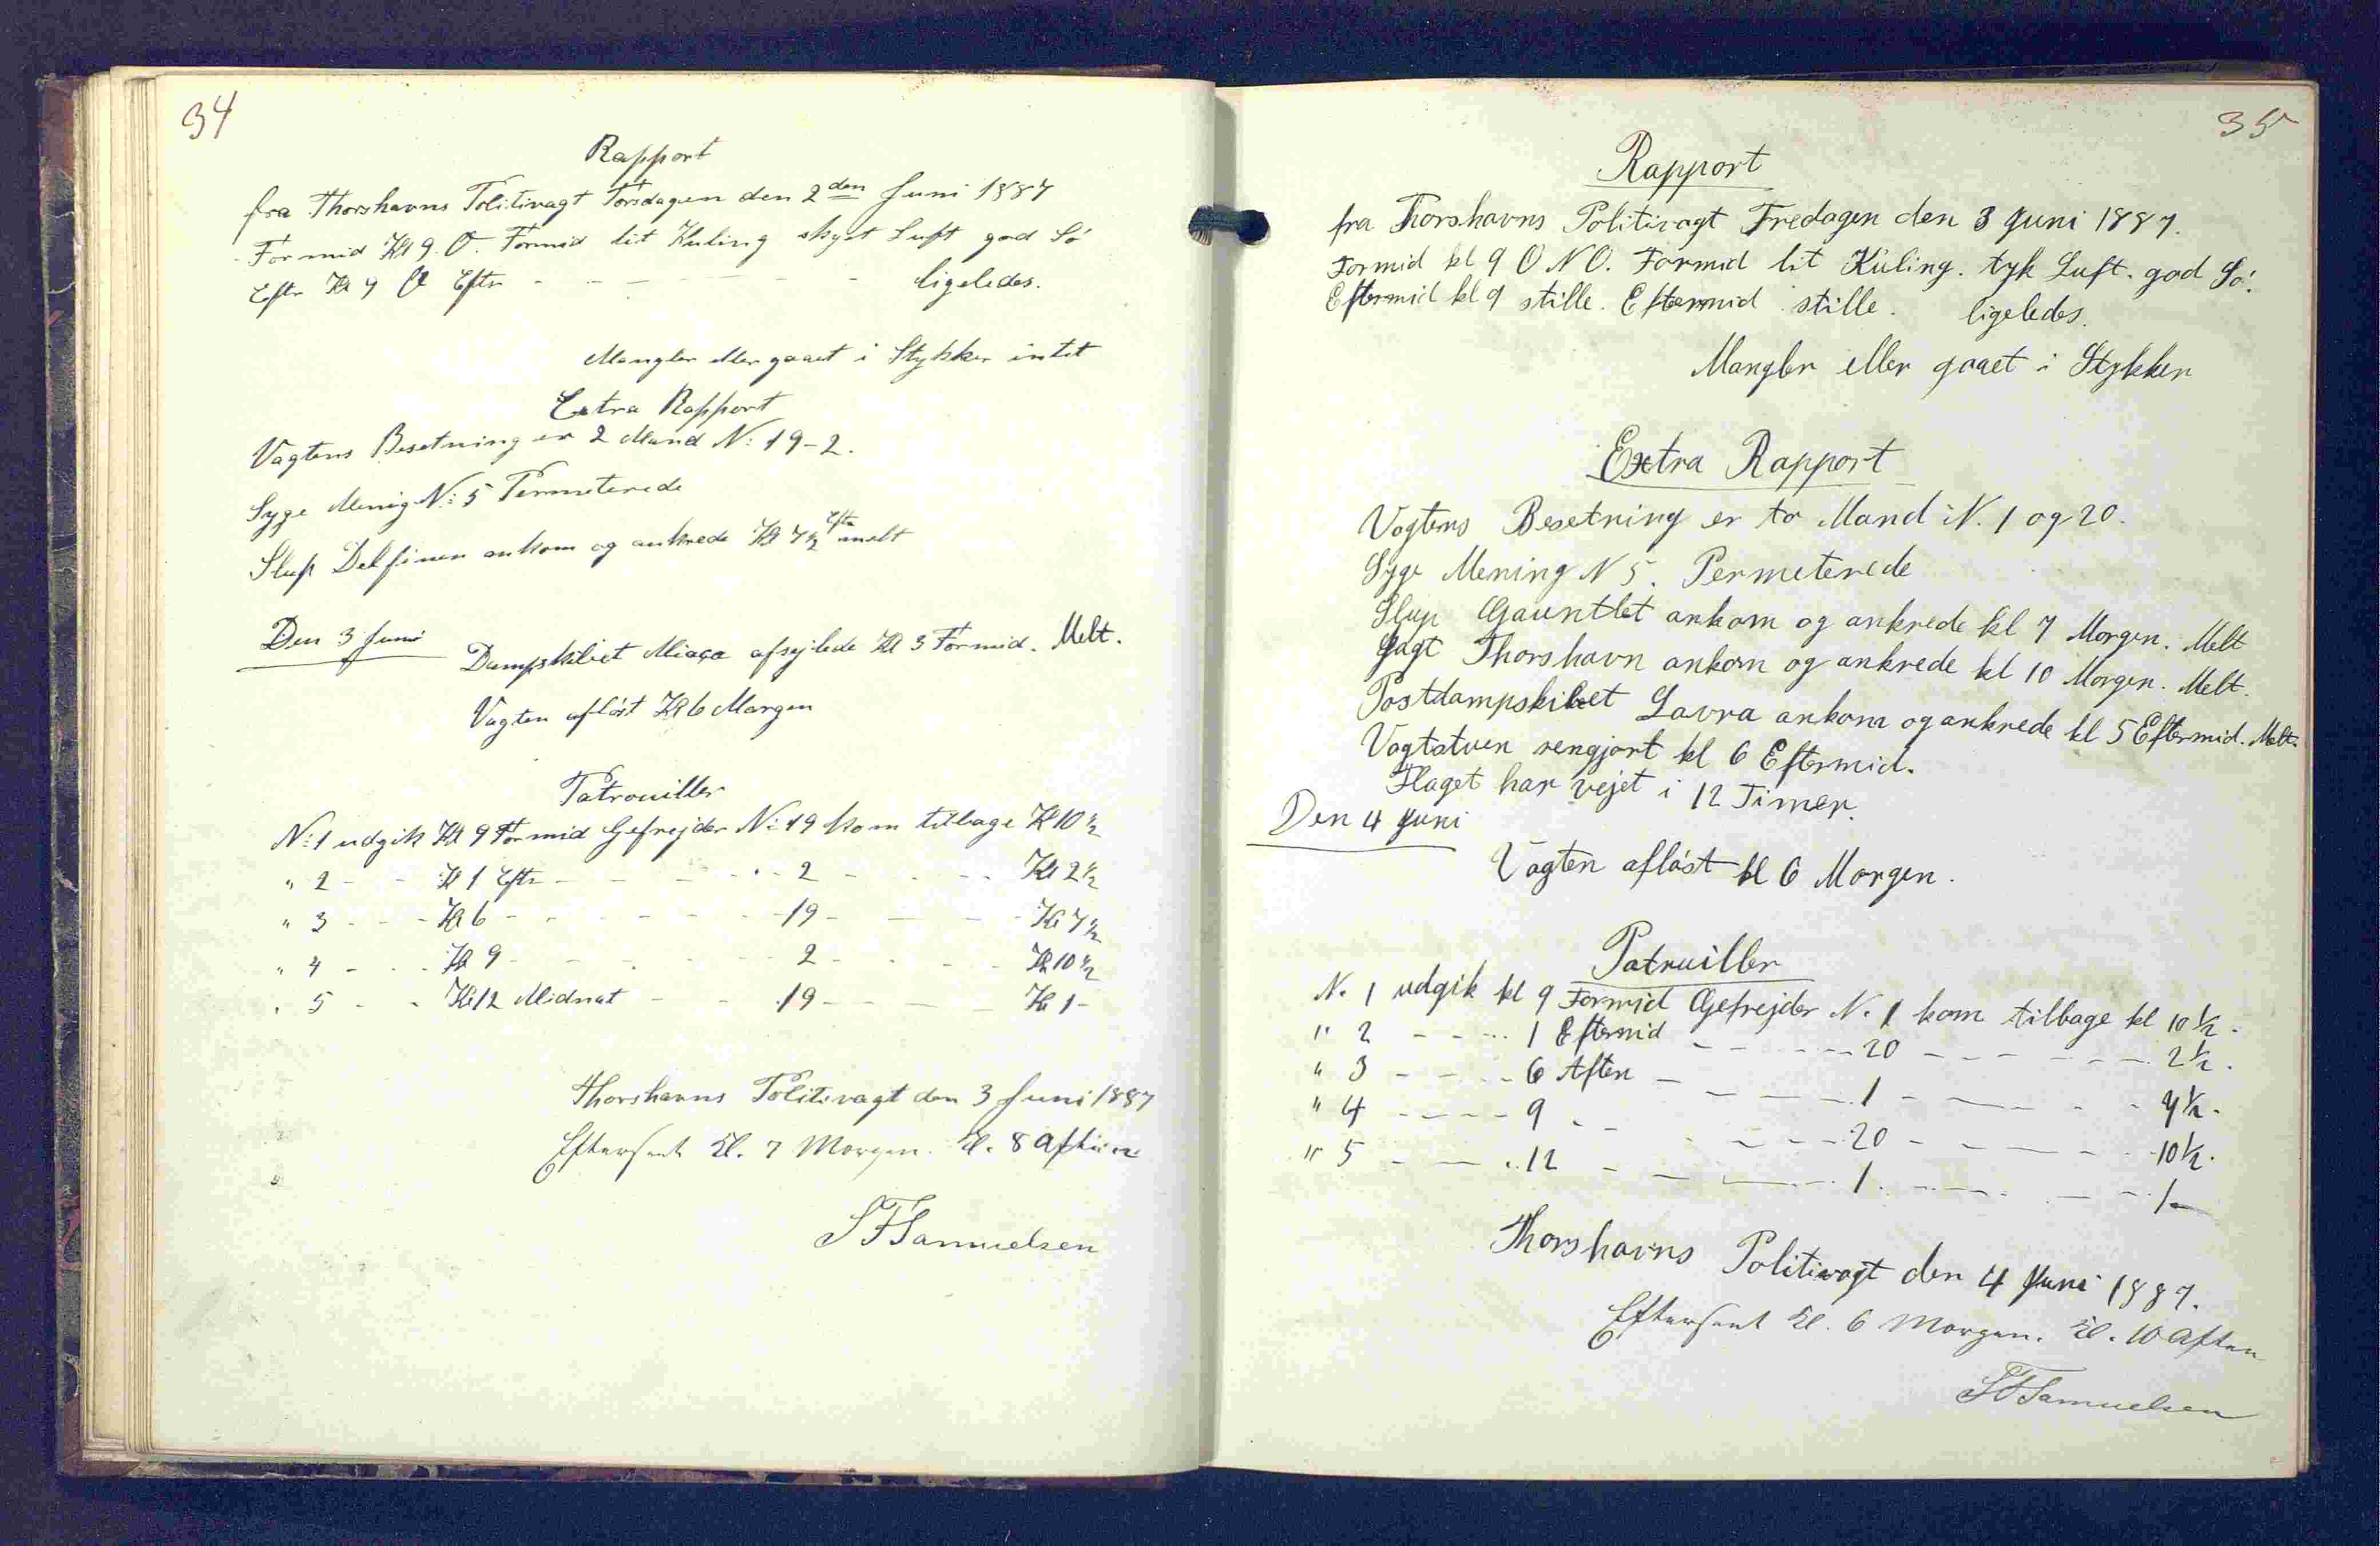 34
Rapport
fra Thorshavns Politivagt Torsdagen den 2den Juni 1887
Formid Kl 9. O. Formid lit Kuling skyet Luft god Sö
Eftr Kl 9 O Eftr - - - - - - ligeledes.
Mangler eller gaaet i Stykker intet
Extra Rapport
Vagtens Besetning er 2 Mand N: 19-2.
Syge Menig N: 5 Permeterede
Slup Delfinen ankom og ankrede Kl 7½ Eftr melt
Den 3 Juni
Dampskibet Miaca afsejlede Kl 3 Formid. Melt.
Vagten aflöst Kl 6 Morgen
Patrouiller
N: 1 udgik Kl 9 Formid Gefrejder N: 19 kom tilbage Kl 10½
" 2 - - Kl 1 Eftr - - - - 2 - - - Kl 2½
" 3 - - - Kl 6 - - - - - 19 - - - Kl 7½
" 4 - - - Kl 9 - - - - - 2 - - - - Kl 10½
" 5 - - Kl 12 Midnat - - 19 - - - Kl 1 -
Thorshavns Politivagt den 3 Juni 1887
Efterseet Kl. 7 Morgen. Kl. 8 Aften
SFSamuelsen
35
Rapport
fra Thorshavns Politivagt Fredagen den 3 Juni 1887.
Formid kl 9 O N O. Formid lit Kuling. tyk Luft. god Sö.
Eftermid kl 9 stille. Eftermid stille. ligeledes.
Mangler eller gaaet i Stykker
Extra Rapport
Vagtens Besetning er to Mand N. 1 og 20.
Syge Mening N 5. Permeterede
Slup Gauntlet ankom og ankrede kl 7 Morgen. Melt
Jagt Thorshavn ankom og ankrede kl 10 Morgen. Melt.
Postdampskibet Lavra ankom og ankrede kl 5 Eftermid. Melt.
Vagtstuen rengjort kl 6 Eftermid.
Flaget har vejet i 12 Timer.
Den 4 Juni
Vagten aflöst kl 6 Morgen.
Patruiller
N. 1 udgik kl 9 Formid Gefrejder N. 1 kom tilbage kl 10½.
" 2 - - - - 1 Eftermid - - - - 20 - - - - - 2½.
" 3 - - - - 6 Aften - - - - 1 - - - - - 7½.
" 4 - - - - 9 - - - - - 20 - - - - - 10½.
" 5 - - - 12 - - - - - 1 - - - - - 1 -
Thorshavns Politivagt den 4 Juni 1887.
Efterseet Kl. 6 Morgen. Kl. 10 Aften
SFSamuelsen